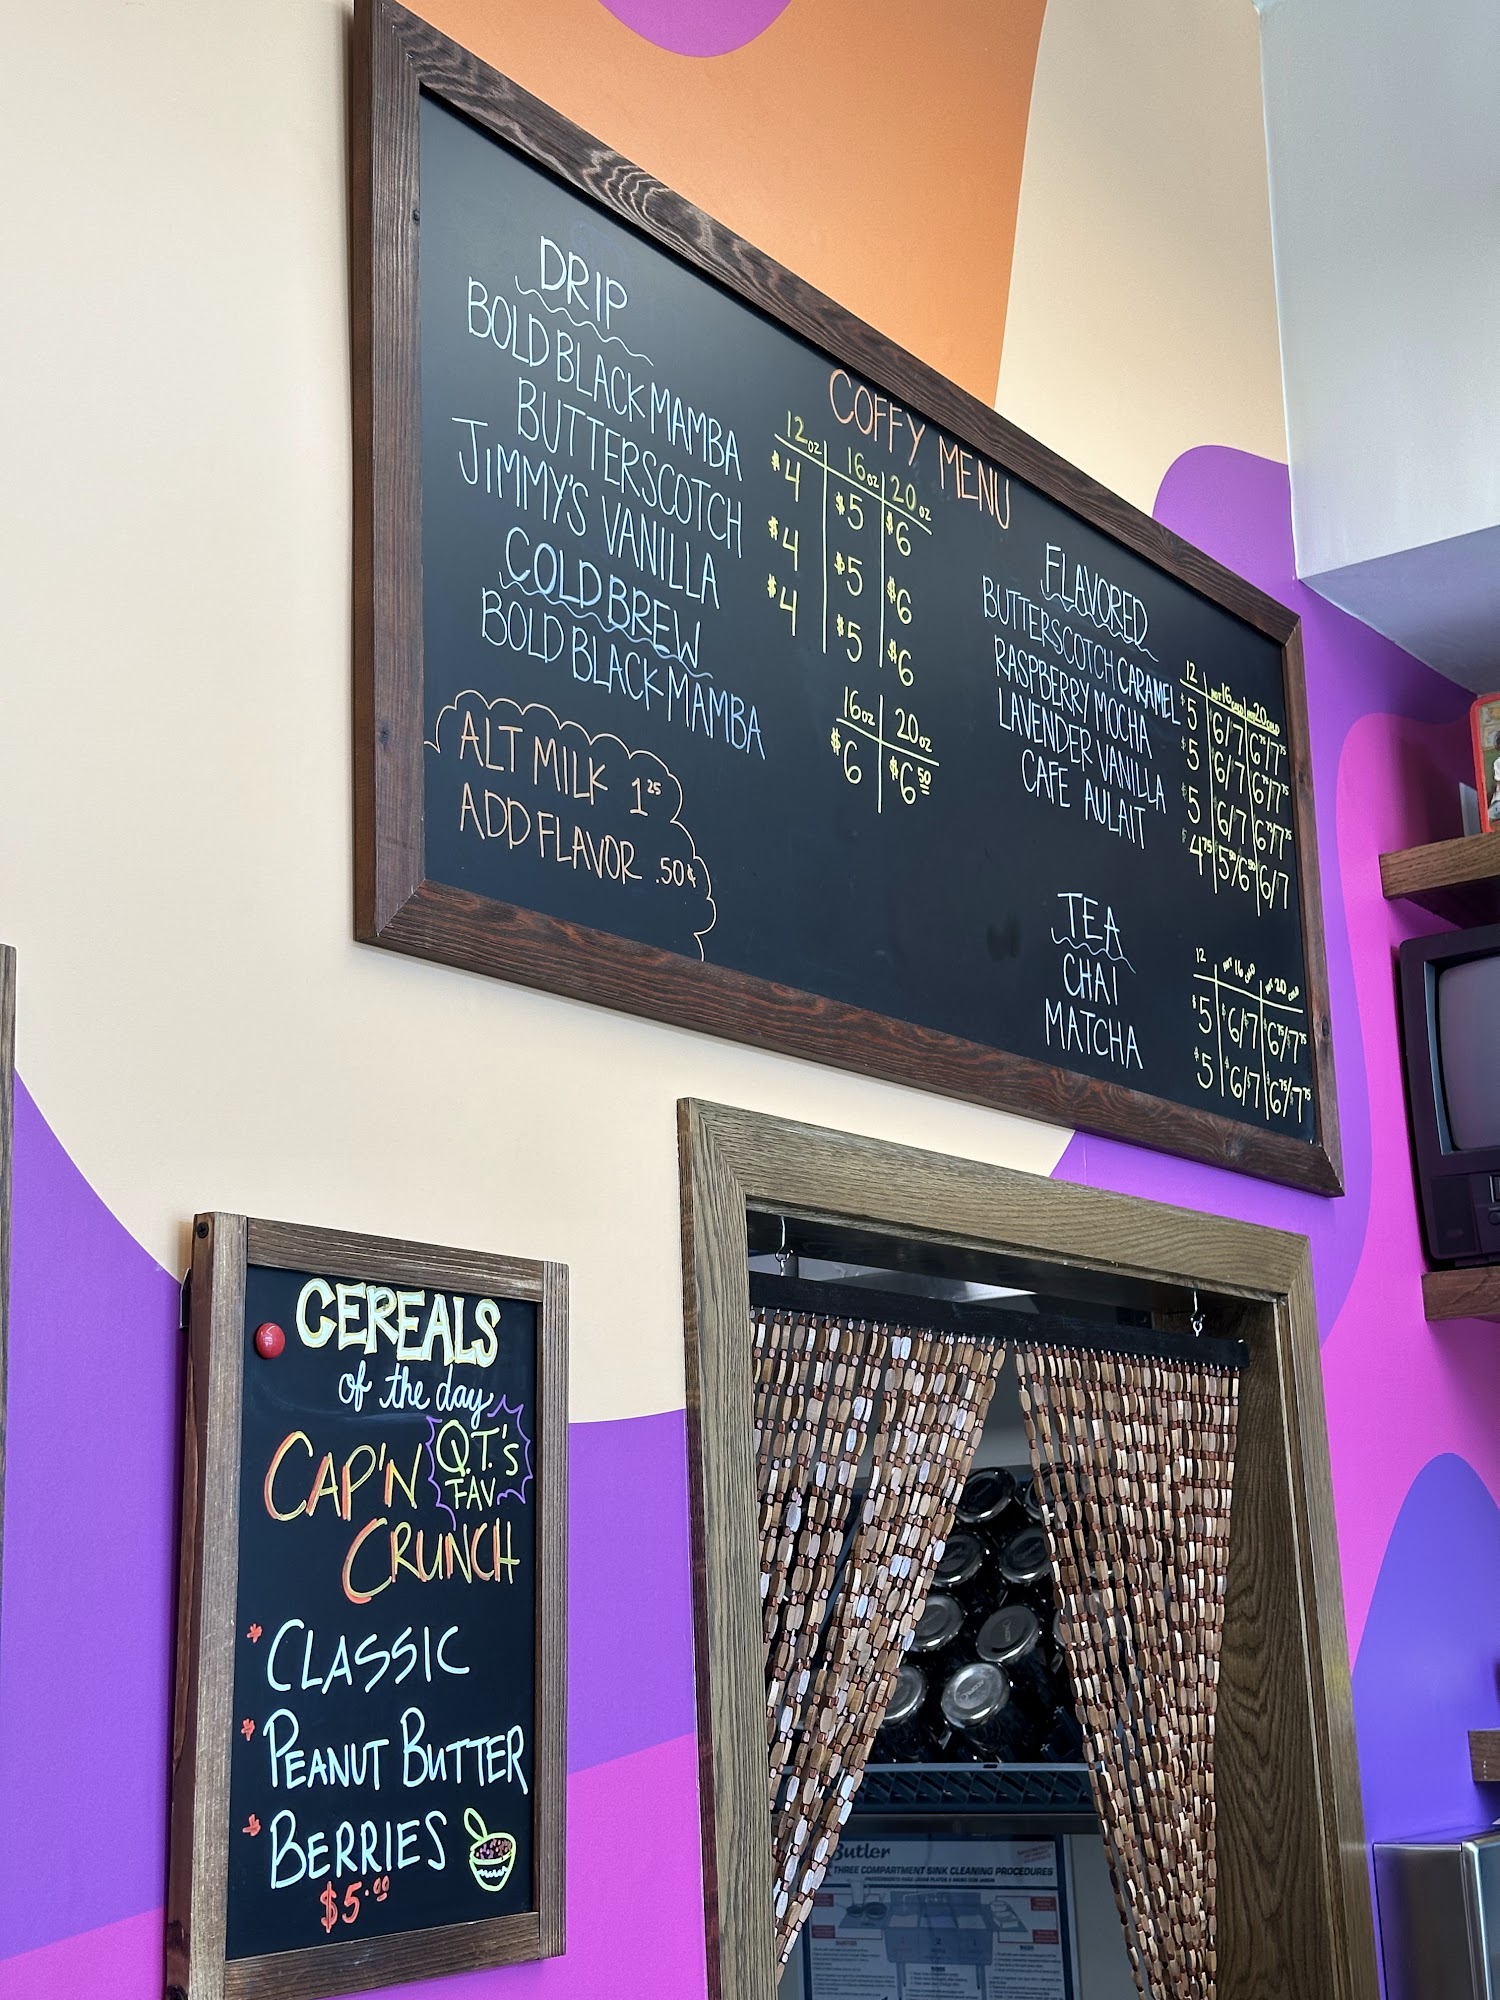 COFFY MENU
DRIP
12oz 16oz 20oz
BOLD BLACK MAMBA $4 $5 $6
BUTTERSCOTCH $4 $5 $6
JIMMY'S VANILLA $4 $5 $6
COLD BREW
16oz 20oz
BOLD BLACK MAMBA $6 $6 50
ALT MILK 1 25
ADD FLAVOR .50¢
FLAVORED
12 HOT 16 COLD HOT 20 COLD
BUTTERSCOTCH CARAMEL $5 $6/7 6 75/7 75
RASPBERRY MOCHA $5 $6/7 6 75/7 75
LAVENDER VANILLA $5 $6/7 6 75/7 75
CAFE AULAIT $4 75 5 50/6 50 6/7
TEA
12 HOT 16 COLD HOT 20 COLD
CHAI $5 $6/$7 $6 75/$7 75
MATCHA $5 $6/$7 $6 75/$7 75
CEREALS
of the day
CAP'N
CRUNCH
Q.T.'s
FAV
* CLASSIC
* PEANUT BUTTER
* BERRIES
$5.00
Butler
THREE COMPARTMENT SINK CLEANING PROCEDURES